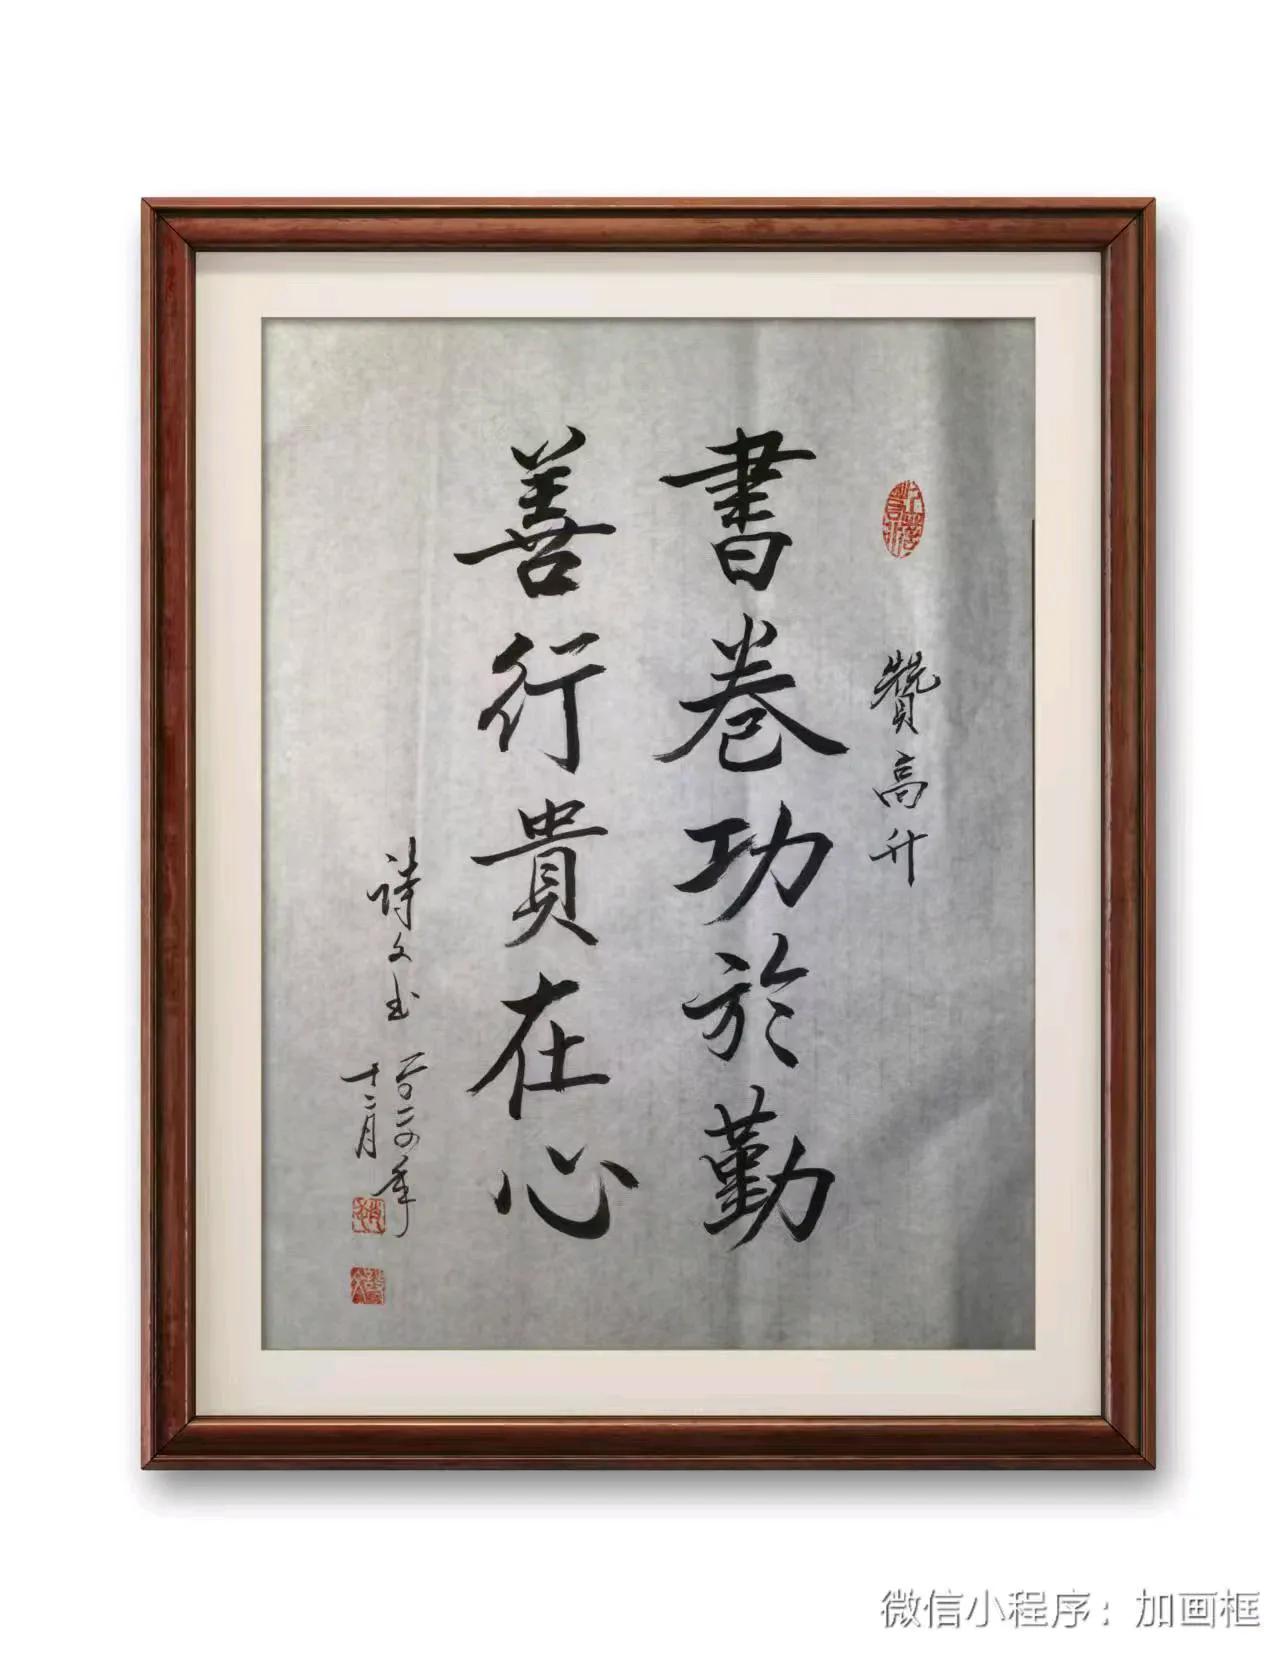 贊高升
書卷功於勤
善行貴在心
詩文书
二〇二四年
十二月
微信小程序：加画框